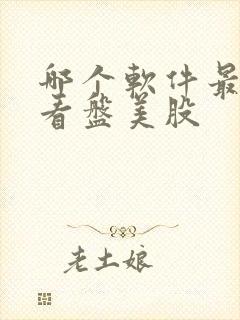 哪个软件最
看盘美股
老土娘